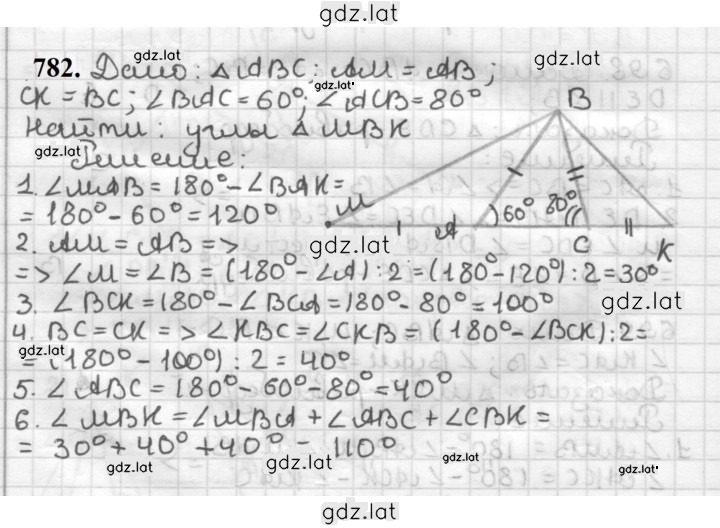 gdz.lat
782. Дано: △ABC: AM = AB;
gdz.lat
gdz.lat
CK = BC; ∠BAC = 60°; ∠ACB = 80°
gdz.lat
Найти: углы △MBK
gdz.lat
Решение:
1. ∠MAB = 180° - ∠BAK =
= 180° - 60° = 120°
2. AM = AB =>
=> ∠M = ∠B = (180° - ∠A) : 2 = (180° - 120°) : 2 = 30°
3. ∠BCK = 180° - ∠BCA = 180° - 80° = 100°
4. BC = CK => ∠KBC = ∠CKB = (180° - ∠BCK) : 2 =
= (180° - 100°) : 2 = 40°
5. ∠ABC = 180° - 60° - 80° = 40°
6. ∠MBK = ∠MBA + ∠ABC + ∠CBK =
= 30° + 40° + 40° = 110°
B
M
60° 80°
A
C
K
gdz.lat
gdz.lat
gdz.lat
gdz.lat
gdz.lat
gdz.lat
gdz.lat
gdz.lat